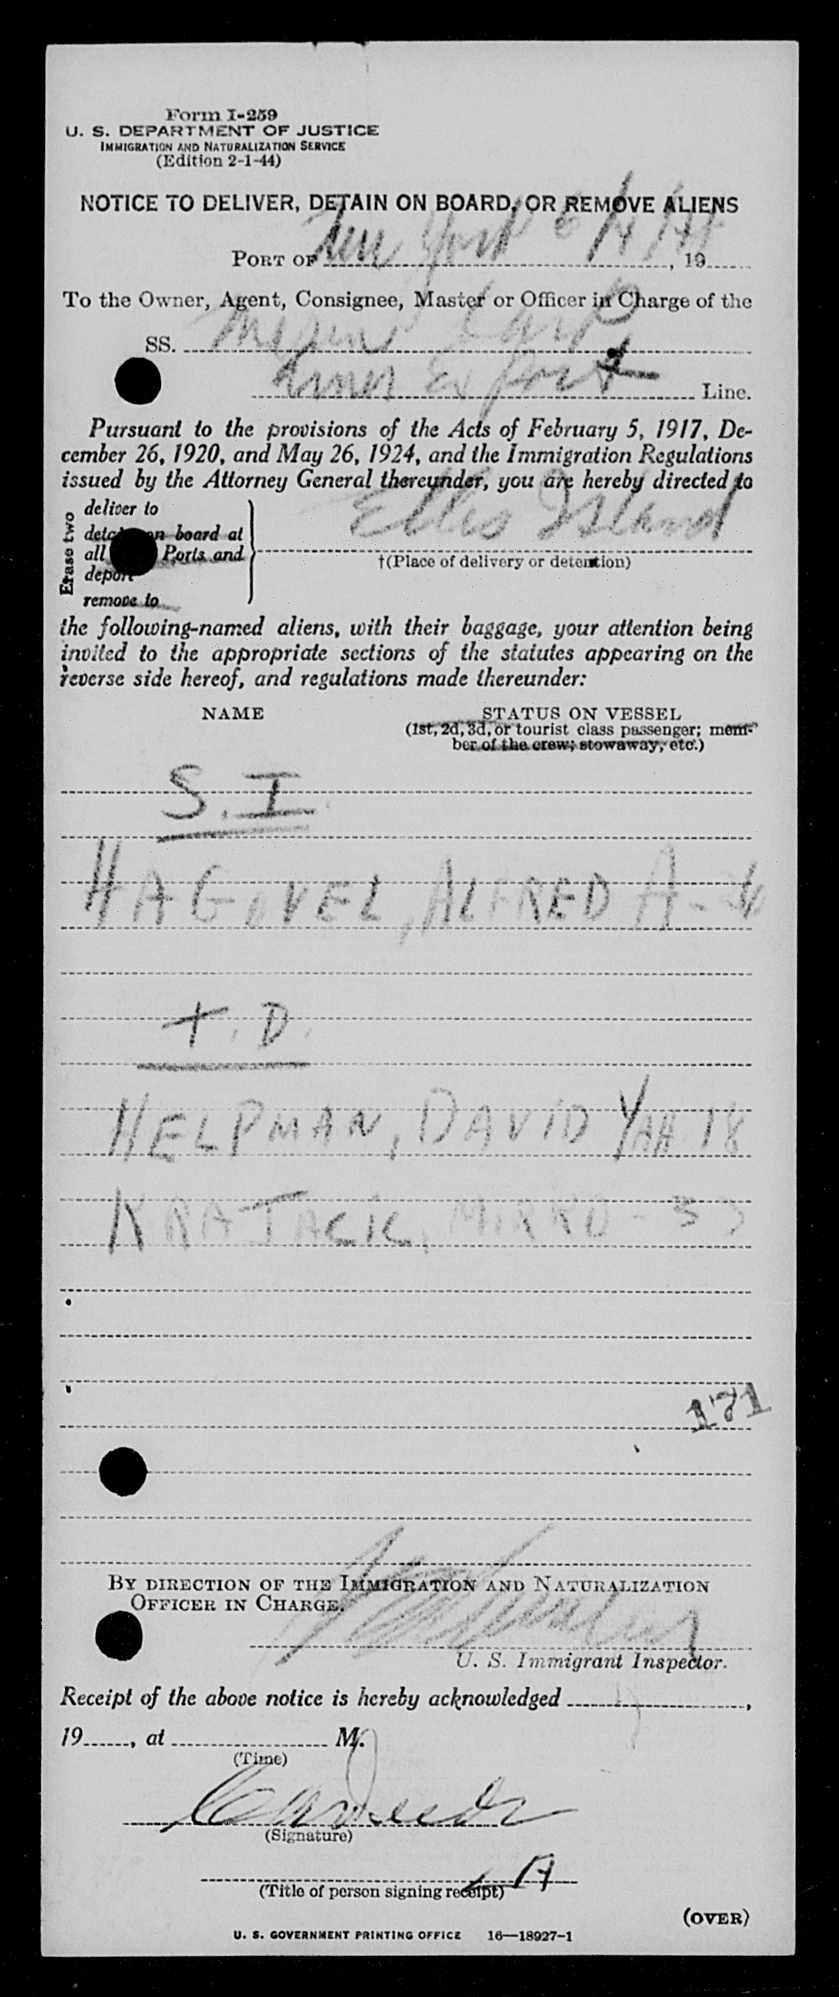 Form I-259
U. S. DEPARTMENT OF JUSTICE
IMMIGRATION AND NATURALIZATION SERVICE
(Edition 2-1-44)
NOTICE TO DELIVER, DETAIN ON BOARD, OR REMOVE ALIENS
PORT OF New York 6/4/ , 19
To the Owner, Agent, Consignee, Master or Officer in Charge of the
SS.
Export Line.
Pursuant to the provisions of the Acts of February 5, 1917, De-
cember 26, 1920, and May 26, 1924, and the Immigration Regulations
issued by the Attorney General thereunder, you are hereby directed to
Erase two
deliver to
detain on board at
all Ports and
deport
remove to
Ellis Island
†(Place of delivery or detention)
the following-named aliens, with their baggage, your attention being
invited to the appropriate sections of the statutes appearing on the
reverse side hereof, and regulations made thereunder:
NAME STATUS ON VESSEL
(1st, 2d, 3d, or tourist class passenger; mem-
ber of the crew; stowaway, etc.)
S. I
ALFRED A -
T. D.
HELPMAN, DAVID 18
KRAJACIC, MIRKO - 33
171
BY DIRECTION OF THE IMMIGRATION AND NATURALIZATION
OFFICER IN CHARGE.
U. S. Immigrant Inspector.
Receipt of the above notice is hereby acknowledged ,
19 , at M.
(Time)
(Signature)
(Title of person signing receipt)
(OVER)
U. S. GOVERNMENT PRINTING OFFICE 16—18927-1